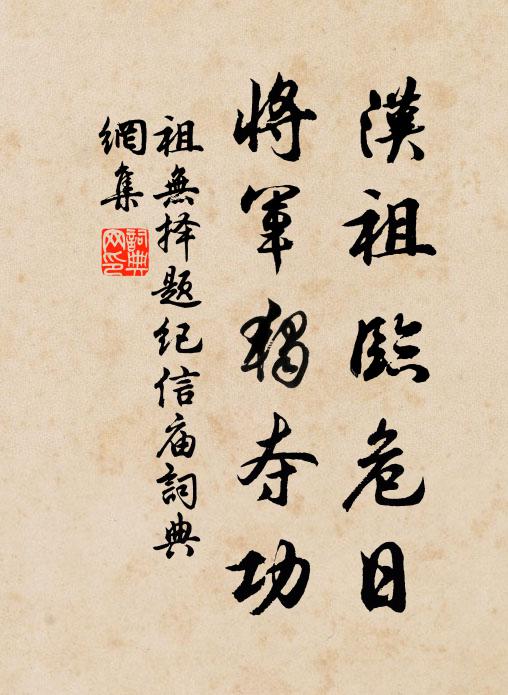 漢祖臨危日
將軍獨夺功
祖無择题纪信庙詞典
網集
詞典
网印